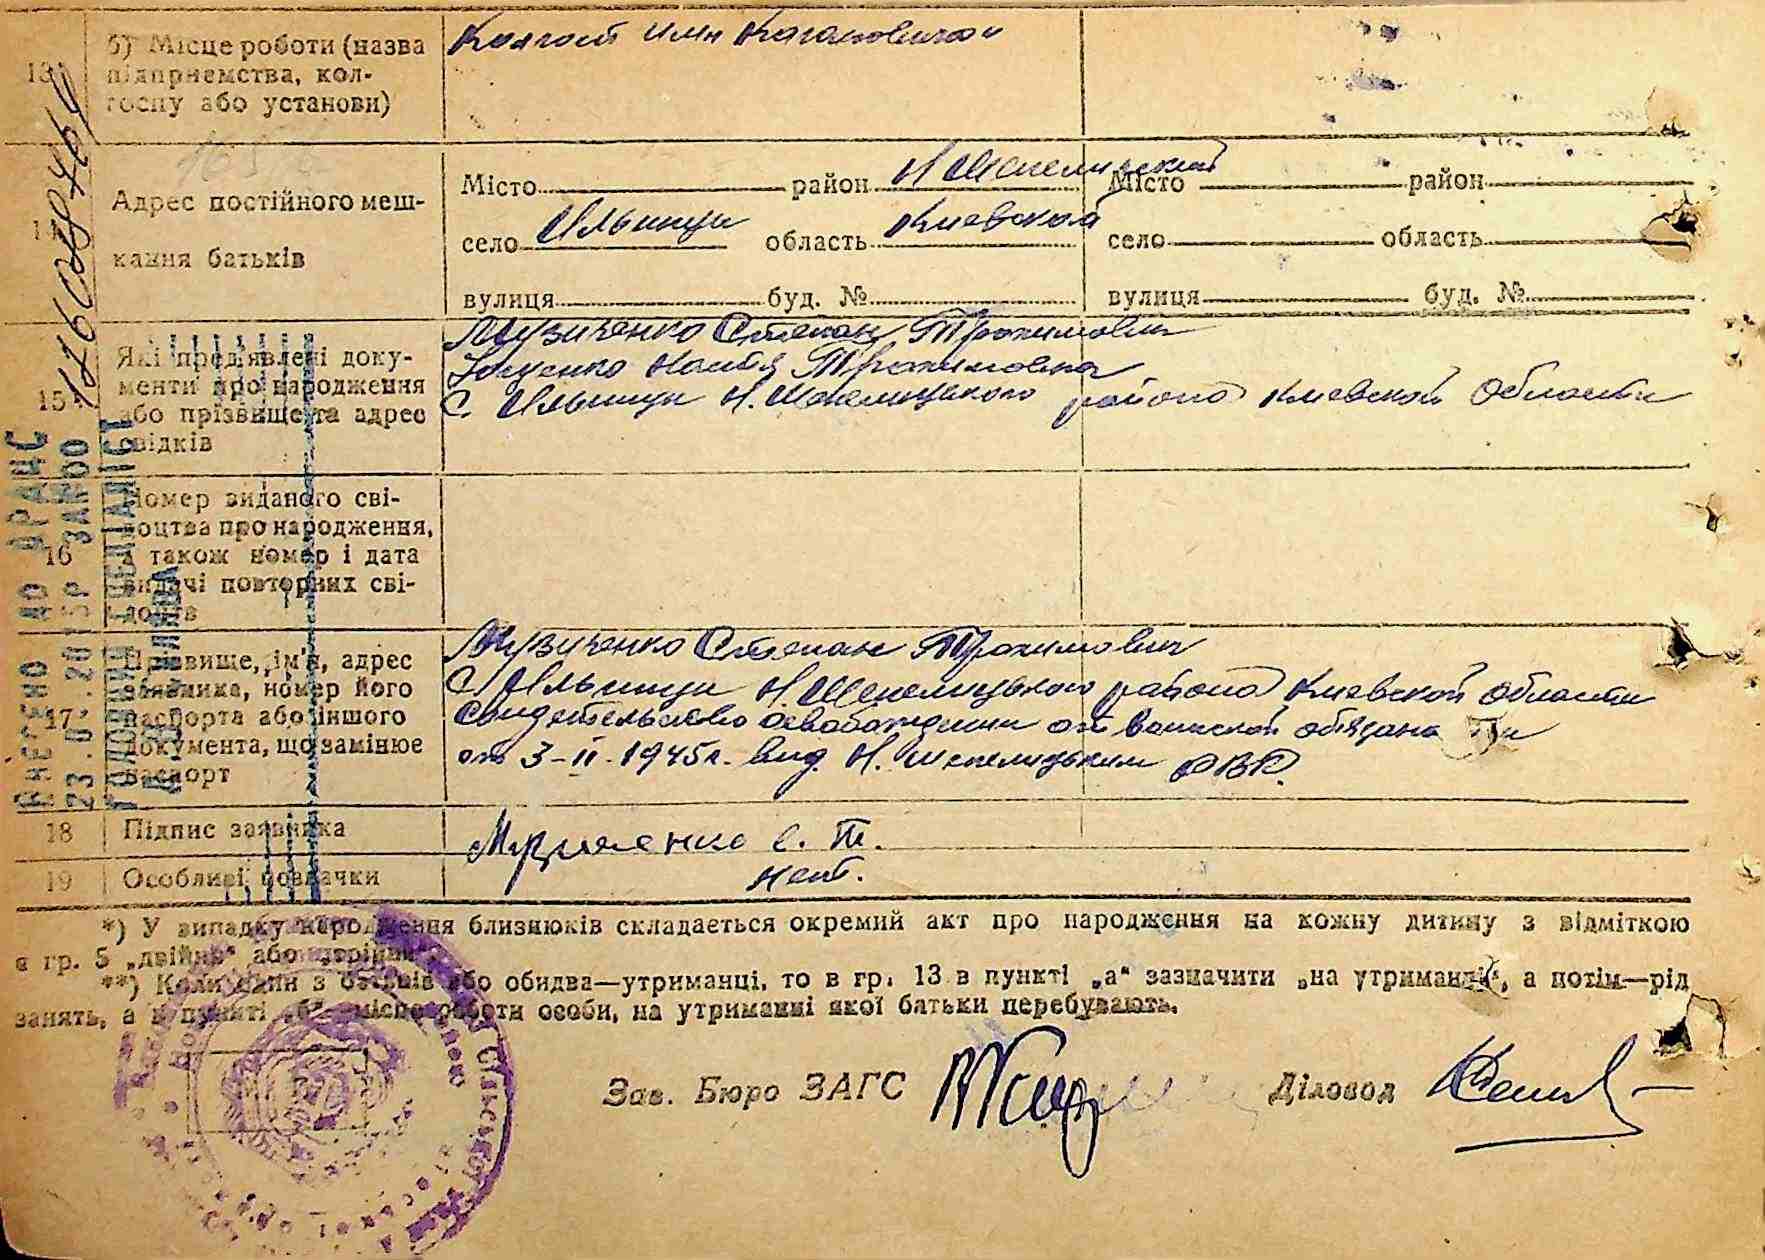 13 б) Місце роботи (назва підприємства, колгоспу або установи)
Колгосп имн Кагановича
14 Адрес постійного мешкання батьків
Місто район Н Шепелицкий Місто район
село Ильинци область Киевской село область
вулиця буд. № вулиця буд. №
15 Які пред'явлені документи про народження або прізвище та адрес свідків
Музиченко Степан Трохимович
Настя Трохимовна
с. Ильинци Н. Шепелицького района Киевской области
16 Номер виданого свідоцтва про народження, а також номер і дата видачі повторних свідоцтв
17 Прізвище, ім'я, адрес заявника, номер його паспорта або іншого документа, що замінює паспорт
Музиченко Степан Трохимович
с. Ильинци Н. Шепелицького района Киевской области
свидетельство освобождении от воинской обязаности
от 3-II-1945г. вид. Н. Шепелицьким РВК.
18 Підпис заявника
Музиченко С. Т.
19 Особливі позначки
нет.
*) У випадку народження близнюків складається окремий акт про народження на кожну дитину з відміткою
в гр. 5 „двійня“ або „трійня“.
**) Коли один з батьків або обидва—утриманці, то в гр. 13 в пункті „а“ зазначити „на утриманні“, а потім—рід
занять, а в пункті „б“—місце роботи особи, на утриманні якої батьки перебувають.
Зав. Бюро ЗАГС Діловод
ВНЕСЕНО ДО ДРАЦС
ГОЛОВНИЙ СПЕЦІАЛІСТ